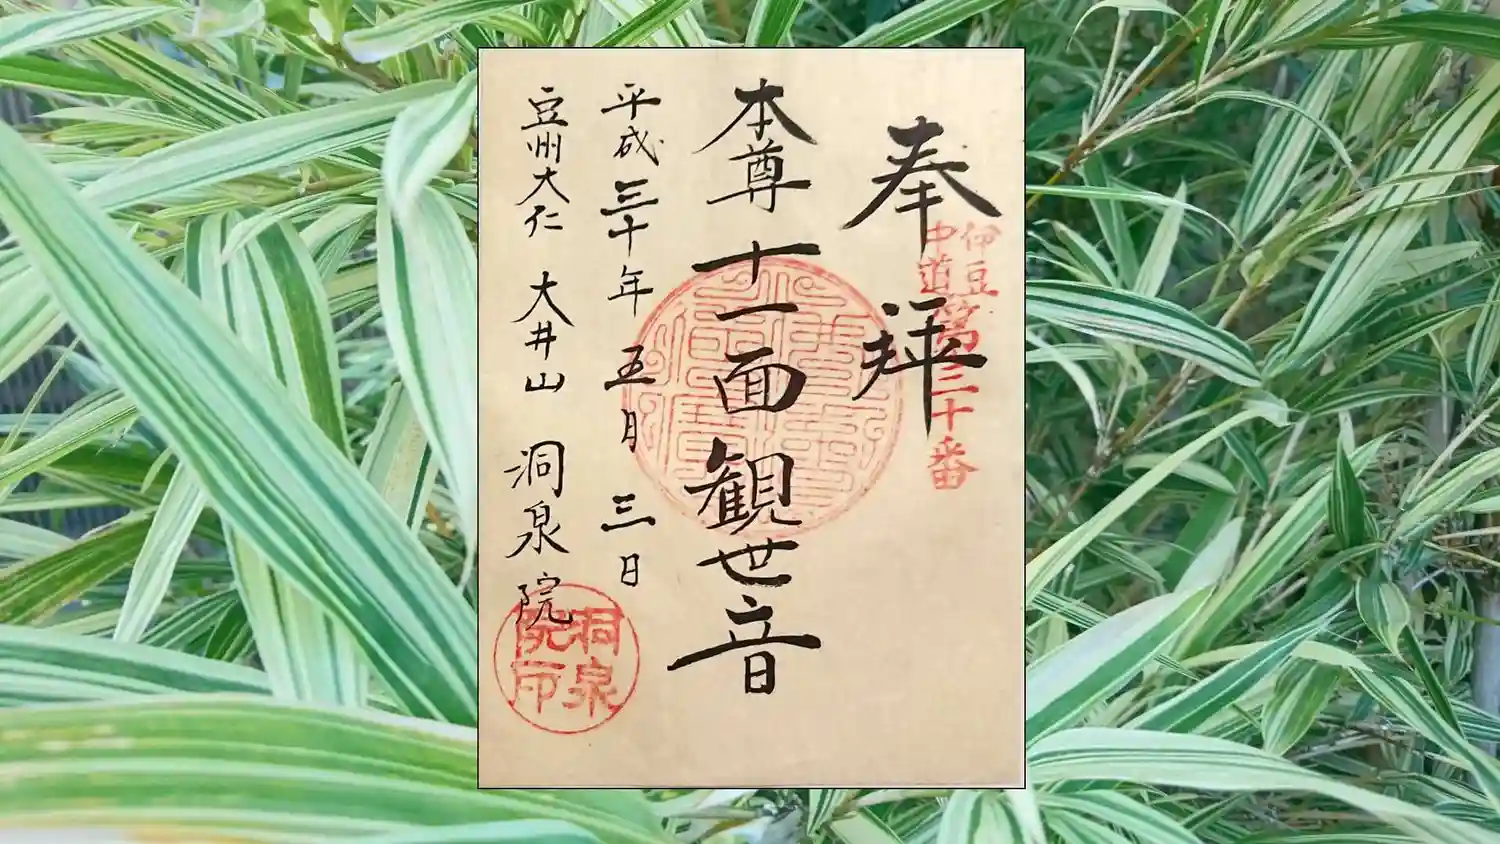 奉拝
伊豆
中道
第三十番
本尊十一面観世音
平成三十年五月三日
豆州大仁 大井山 洞泉院
洞泉
院印